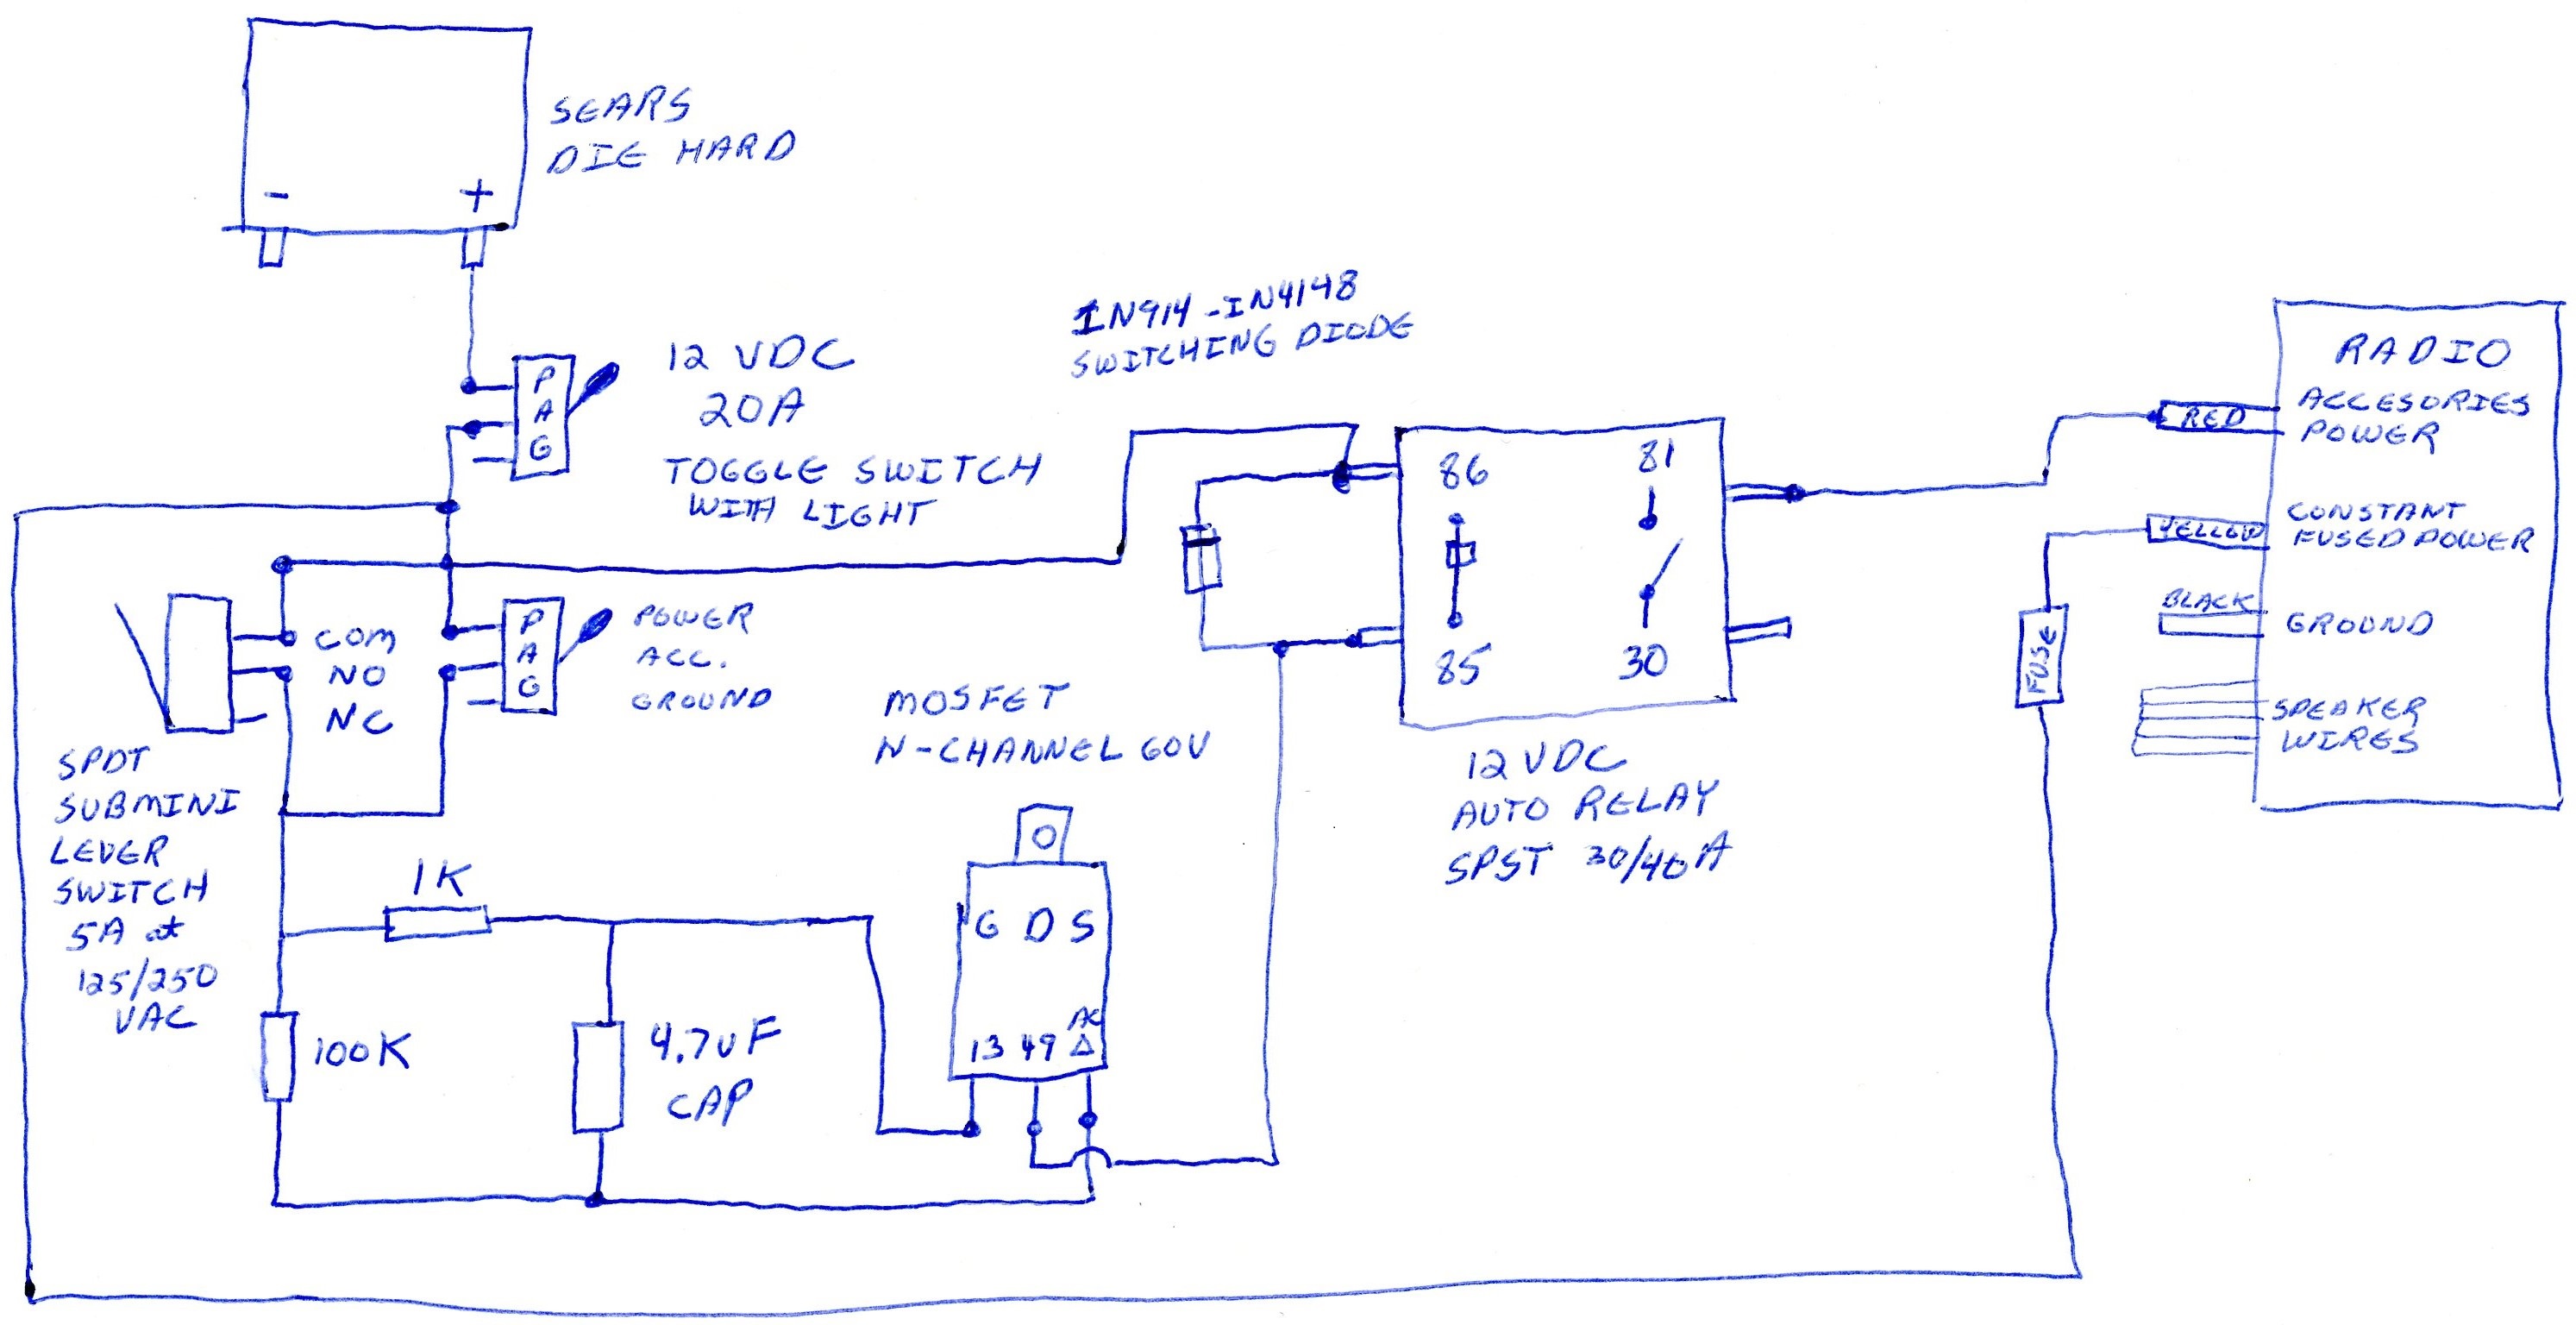 - +
SEARS
DIE HARD
P
A
G
12 VDC
20A
TOGGLE SWITCH
WITH LIGHT
1N914 - IN4148
SWITCHING DIODE
86
81
85
30
12 VDC
AUTO RELAY
SPST 30/40A
RADIO
RED
ACCESORIES
POWER
YELLOW
CONSTANT
FUSED POWER
BLACK
GROUND
SPEAKER
WIRES
FUSE
COM
NO
NC
P
A
G
POWER
ACC.
GROUND
SPDT
SUBMINI
LEVER
SWITCH
5A at
125/250
VAC
1K
100K
4.7UF
CAP
MOSFET
N-CHANNEL 60V
G D S
AC
13 49 Δ